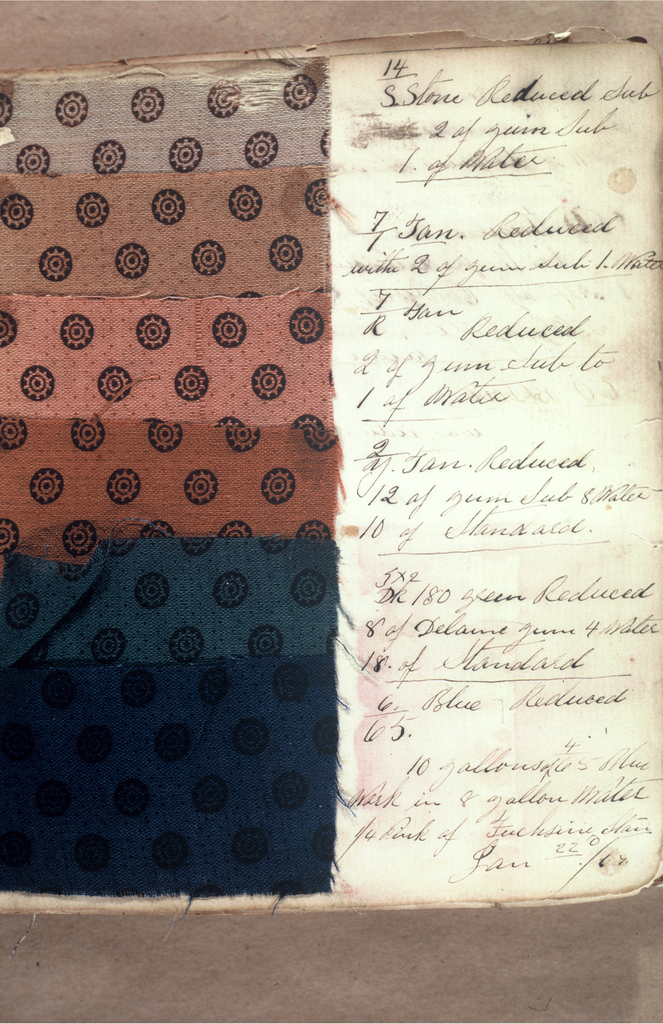 14
S. Stone Reduced Sub
2 of gum Sub
1. of Water
7
T Tan. Reduced
with 2 of gum Sub 1. Water
7
R Tan
Reduced
2 of gum Sub to
1 of Water
2
Tan. Reduced.
12 of gum Sub 8 Water
10 of Standard.
5x2
DK 180 green Reduced
8 of Delaine gum 4 Water
18. of Standard
6. Blue Reduced
65.
4
10 gallons of 65 Blue
Work in 8 gallon Water
1/4 of Fuchsine
Jan 22